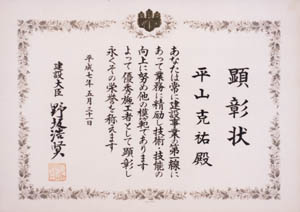 顕彰状
平山克祐殿
あなたは常に建設事業の第一線に
あって業務に精励し技術・技能の
向上に努め他の模範であります
よって優秀施工者として顕彰し
永くその栄誉を称えます
平成七年五月三十一日
建設大臣 野坂浩賢